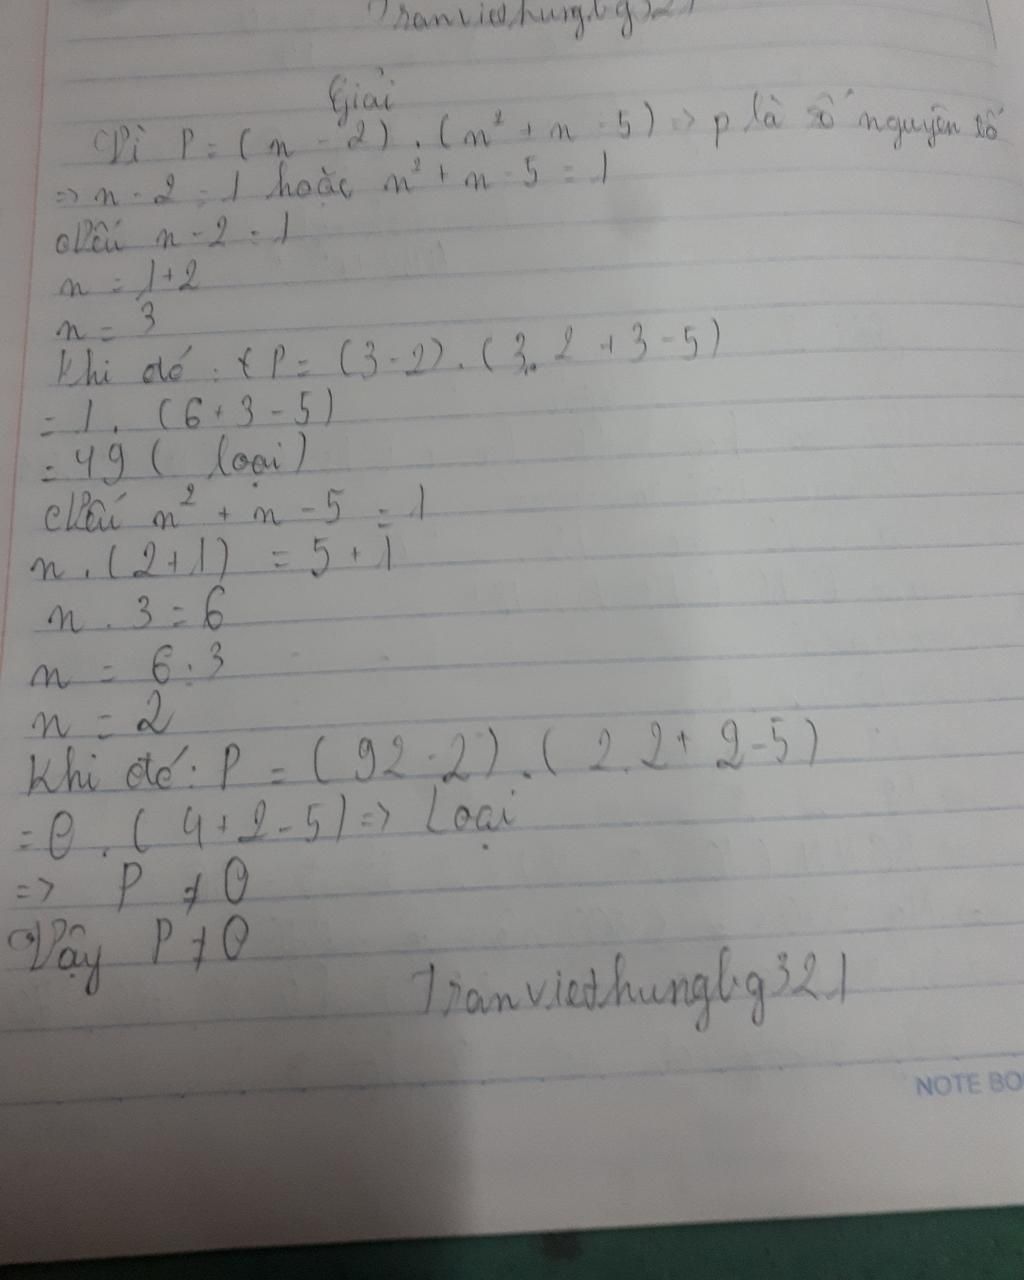 Tranviethungbg321
Giải
Vì P = (n - 2) . (n² + n - 5) => p là số nguyên tố
=> n - 2 = 1 hoặc n² + n - 5 = 1
Nếu n - 2 = 1
n = 1 + 2
n = 3
Khi đó : P = (3 - 2) . (3. 2 + 3 - 5)
= 1 . (6 + 3 - 5)
= 49 ( loại)
Nếu n² + n - 5 = 1
n . (2 + 1) = 5 + 1
n . 3 = 6
n = 6 : 3
n = 2
Khi đó : P = ( 92 - 2) . ( 2. 2 + 2 - 5)
= 0 . ( 4 + 2 - 5) => Loại
=> P ≠ 0
Vậy P ≠ 0
Tranviethungbg321
NOTE BO